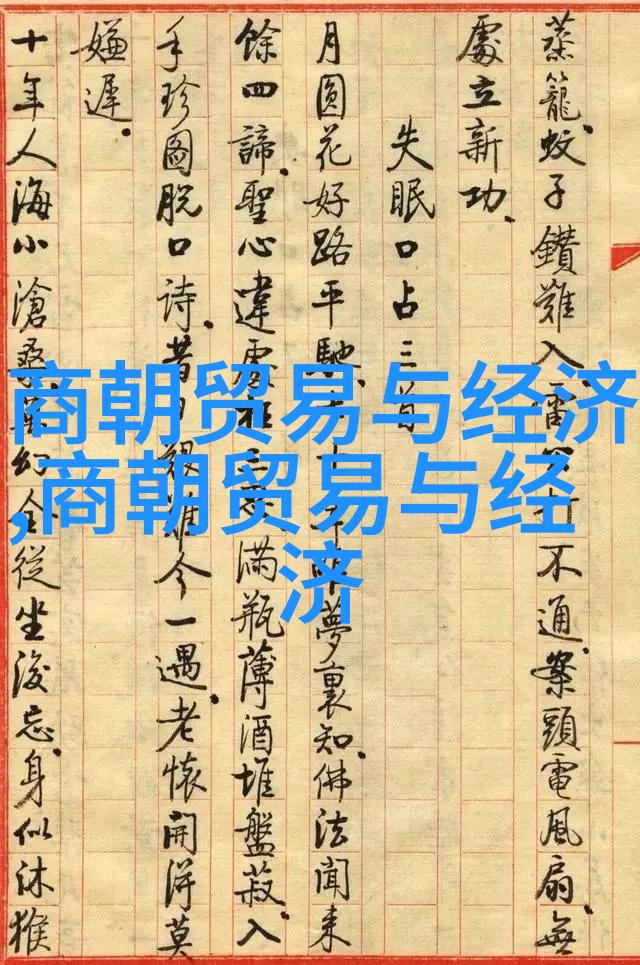 商朝贸易与经济
,商朝贸易与经
济
蒸籠.蚊子鑽難入.打不通.案頭電風扇.無
處立新功.
失眠口占三首
月圓花好路平馳.夢裏知.佛法聞来
餘四諦.聖心違處滿瓶薄酒堆盤菽.入
手珍圖脫口詩.昔難今一遇.老懷開得莫
嫌遲.
十年人海小滄桑幻全從坐後忘.身似沐猴